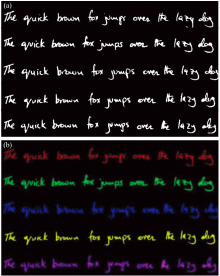 (a)
The quick brown fox jumps over the lazy dog
The quick brown fox jumps over the lazy dog
The quick brown fox jumps over the lazy dog
The quick brown fox jumps over the lazy dog
The quick brown fox jumps over the lazy dog
(b)
The quick brown fox jumps over the lazy dog
The quick brown fox jumps over the lazy dog
The quick brown fox jumps over the lazy dog
The quick brown fox jumps over the lazy dog
The quick brown fox jumps over the lazy dog